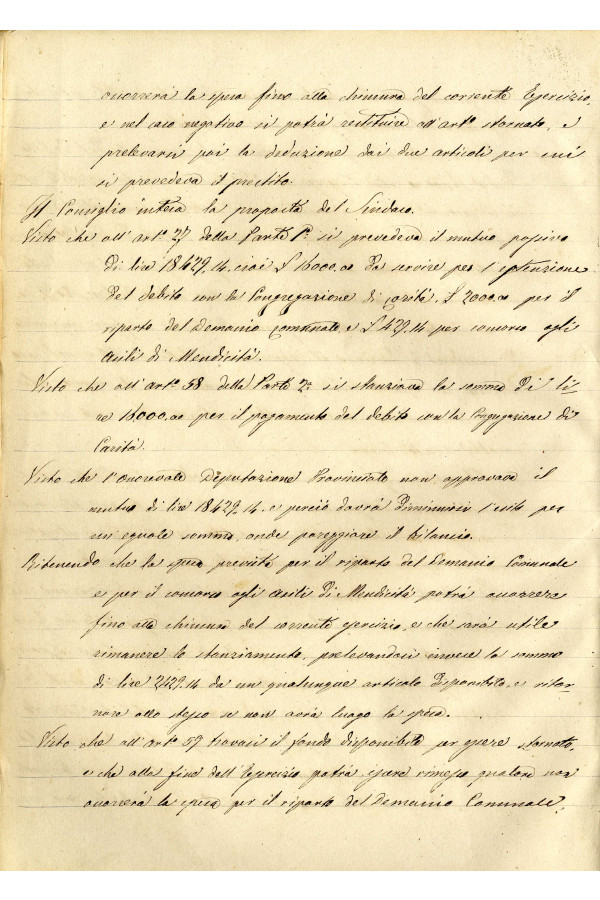 occorrerà la spesa fino alla chiusura del corrente Esercizio,
e nel caso negativo si potrà restituire all'art.° stornato, e
prelevarsi poi la deduzione dai due articoli per cui
si prevedeva il prestito.
Il Consiglio intesa la proposta del Sindaco.
Visto che all'art.° 27 della Parte 1ª si prevedeva il mutuo passivo
di lire 18429.14. cioè £ 16000.00 da servire per l'estinzione
del debito con la Congregazione di carità, £ 2000.00 per il
riparto del Demanio comunale e £ 429.14 per concorso agli
Asili di Mendicità.
Visto che all'art.° 58 della Parte 2ª si stanziava la somma di li=
re 16000.00 per il pagamento del debito con la Congregazione di
Carità.
Visto che l'onorevole Deputazione Provinciale non approvava il
mutuo di lire 18429.14. e perciò dovrà diminuirsi l'esito per
un eguale somma, onde pareggiare il Bilancio.
Ritenendo che la spesa prevista per il riparto del Demanio Comunale
e per il concorso agli Asili di Mendicità potrà occorrere
fino alla chiusura del corrente esercizio, e che sarà utile
rimanere lo stanziamento, prelevandosi invece la somma
di lire 2429.14 da un qualunque articolo disponibile, e ritor=
nare allo stesso se non avrà luogo la spesa.
Visto che all'art.° 59 trovasi il fondo disponibile per essere stornato,
e che alla fine dell'Esercizio potrà essere rimesso qualora non
occorrerà la spesa per il riparto del Demanio Comunale,